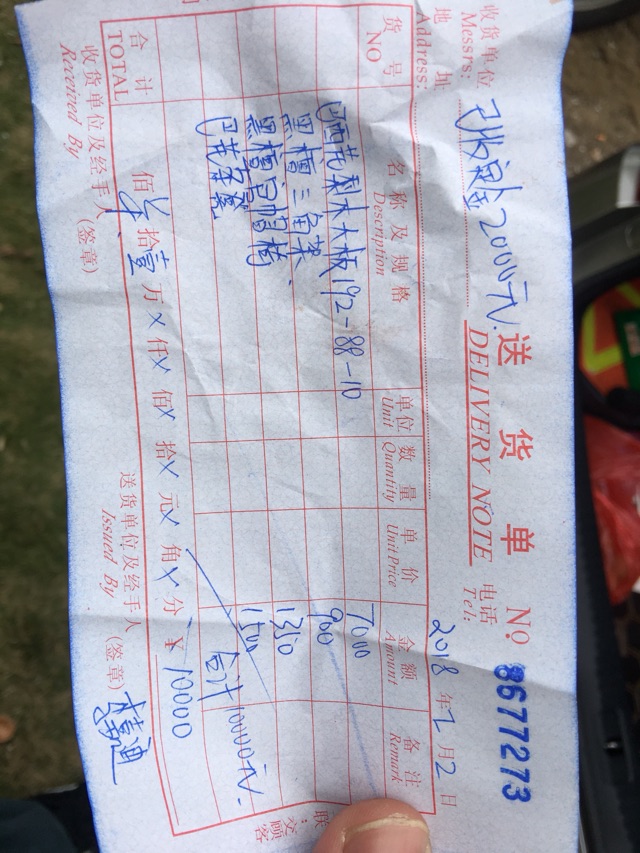 送货单
DELIVERY NOTE
№ 8677273
收货单位
Messrs: 已收定金2000元.
地址
Address:
电话
Tel:
2018年2月2日
货号 名称及规格 单位 数量 单价 金额 备注
NO Description Unit Quantity Unit Price Amount Remark
巴西花梨木大板192-88-10 7000
黑檀三角架. 900
黑檀官帽椅 1310
巴花茶凳 1500
合计10000元.
合计 佰 拾壹万×仟×佰×拾×元×角×分 ¥10000
TOTAL
收货单位及经手人(签章) 送货单位及经手人(签章)
Received By Issued By
联:交顾客